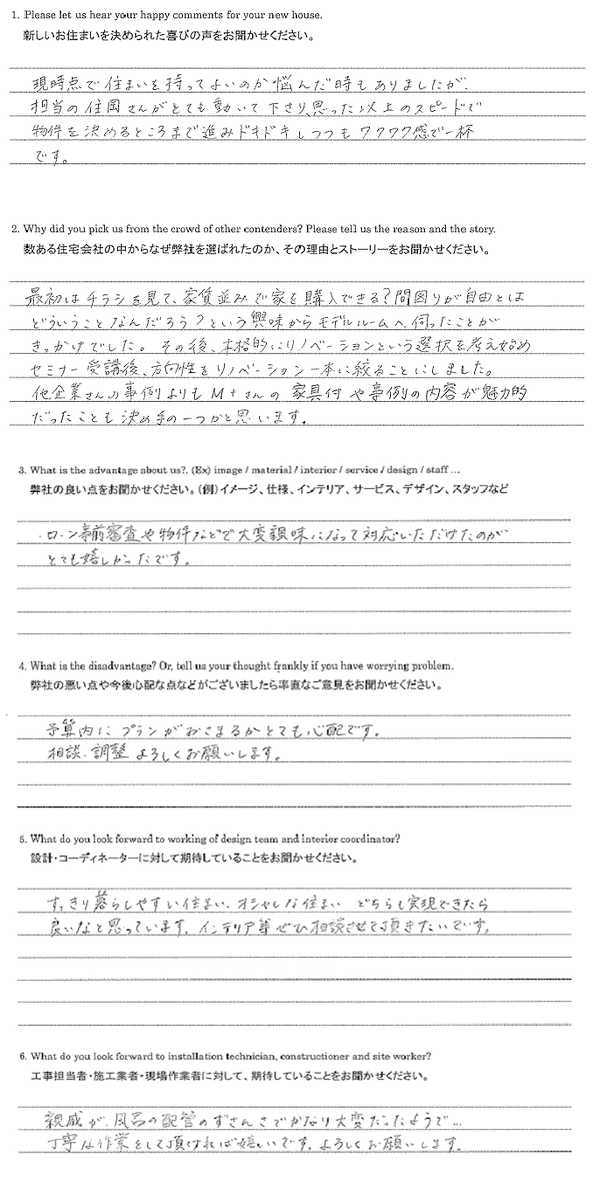 1. Please let us hear your happy comments for your new house.
新しいお住まいを決められた喜びの声をお聞かせください。
現時点で住まいを持ってよいのか悩んだ時もありましたが、
担当の住岡さんがとても動いて下さり、思った以上のスピードで
物件を決めるところまで進みドキドキしつつもワクワク感で一杯
です。
2. Why did you pick us from the crowd of other contenders? Please tell us the reason and the story.
数ある住宅会社の中からなぜ弊社を選ばれたのか、その理由とストーリーをお聞かせください。
最初はチラシを見て、家賃並みで家を購入できる?間囡りが自由とは
どういうことなんだろう?という興味からモデルルームへ伺ったことが
きっかけでした。その後、本格的にリノベーションという選択を考え始め
セミナー受講後、方向性をリノベーション一本に絞ることにしました。
他企業さんの事例よりもM+さんの家具付や事例の内容が魅力的
だったことも決め手の一つかと思います。
3. What is the advantage about us?. (Ex) image / material / interior / service / design / staff ...
弊社の良い点をお聞かせください。(例)イメージ、仕様、インテリア、サービス、デザイン、スタッフなど
・ローン事前審査や物件などで大変親味になって対応いただけたのが
とても嬉しかったです。
4. What is the disadvantage? Or, tell us your thought frankly if you have worrying problem.
弊社の悪い点や今後心配な点などがございましたら率直なご意見をお聞かせください。
予算内にプランがおさまるかとても心配です。
相談・調整よろしくお願いします。
5. What do you look forward to working of design team and interior coordinator?
設計・コーディネーターに対して期待していることをお聞かせください。
すっきり暮らしやすい住まい、オシャレな住まい どちらも実現できたら
良いなと思っています。インテリア等ぜひ相談させて頂きたいです。
6. What do you look forward to installation technician, constructioner and site worker?
工事担当者・施工業者・現場作業者に対して、期待していることをお聞かせください。
親戚が、風呂の配管のずさんさでかなり大変だったようで…
丁寧な作業をして頂ければ嬉しいです。よろしくお願いします。